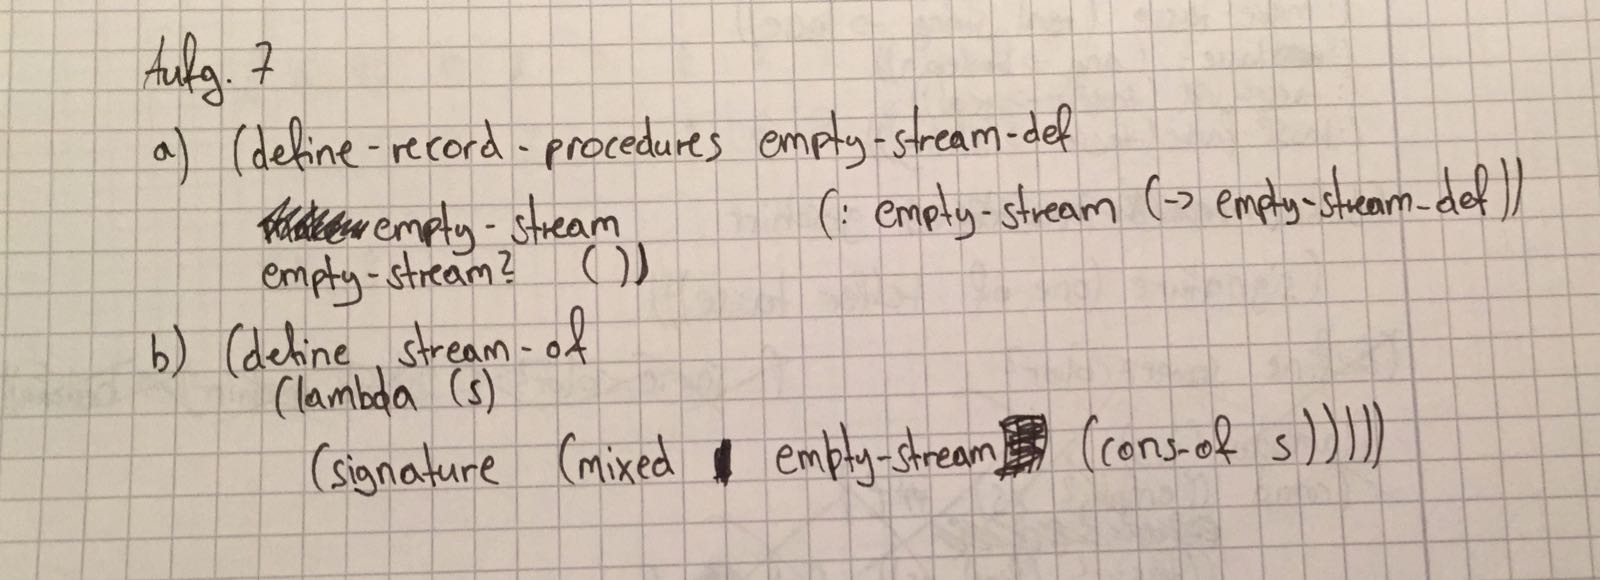 Aufg. 7
a) (define-record-procedures empty-stream-def
(: empty-stream (-> empty-stream-def))
empty-stream
empty-stream? ())
b) (define stream-of
(lambda (s)
(signature (mixed empty-stream (cons-of s)))))